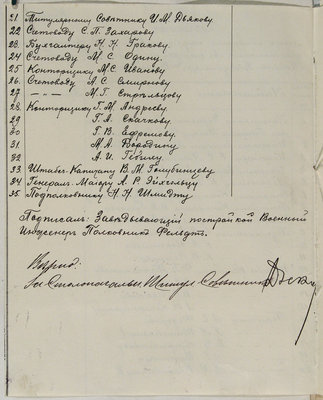 21 Титулярному Советнику И. М. Дьякову.
22 Счетоводу С. П. Захарову
23. Бухгалтеру Н. Н. Гракову.
24 Счетоводу М. С. Одину.
25 Конторщику М. С. Иванову
26. Счетоводу А. С. Смирнову
27 —„— М. Г. Стрѣльцову
28. Конторщику Г. М. Андрееву
29 Г. А. Скачкову.
30 Г. В. Ефремову.
31 М. А. Бородину
32 А. И.
33 Штабсъ-Капитану В. М. Голубинцеву
34 Генералъ-Маіору А. Р. Эйхгольцу
35 Подполковнику Н. Н. Шмидту
Подписалъ: Завѣдывающій постройкой Военный
Инженеръ Полковникъ Фельдтъ.
Вѣрно:
За Столоначальника Титул. Совѣтникъ